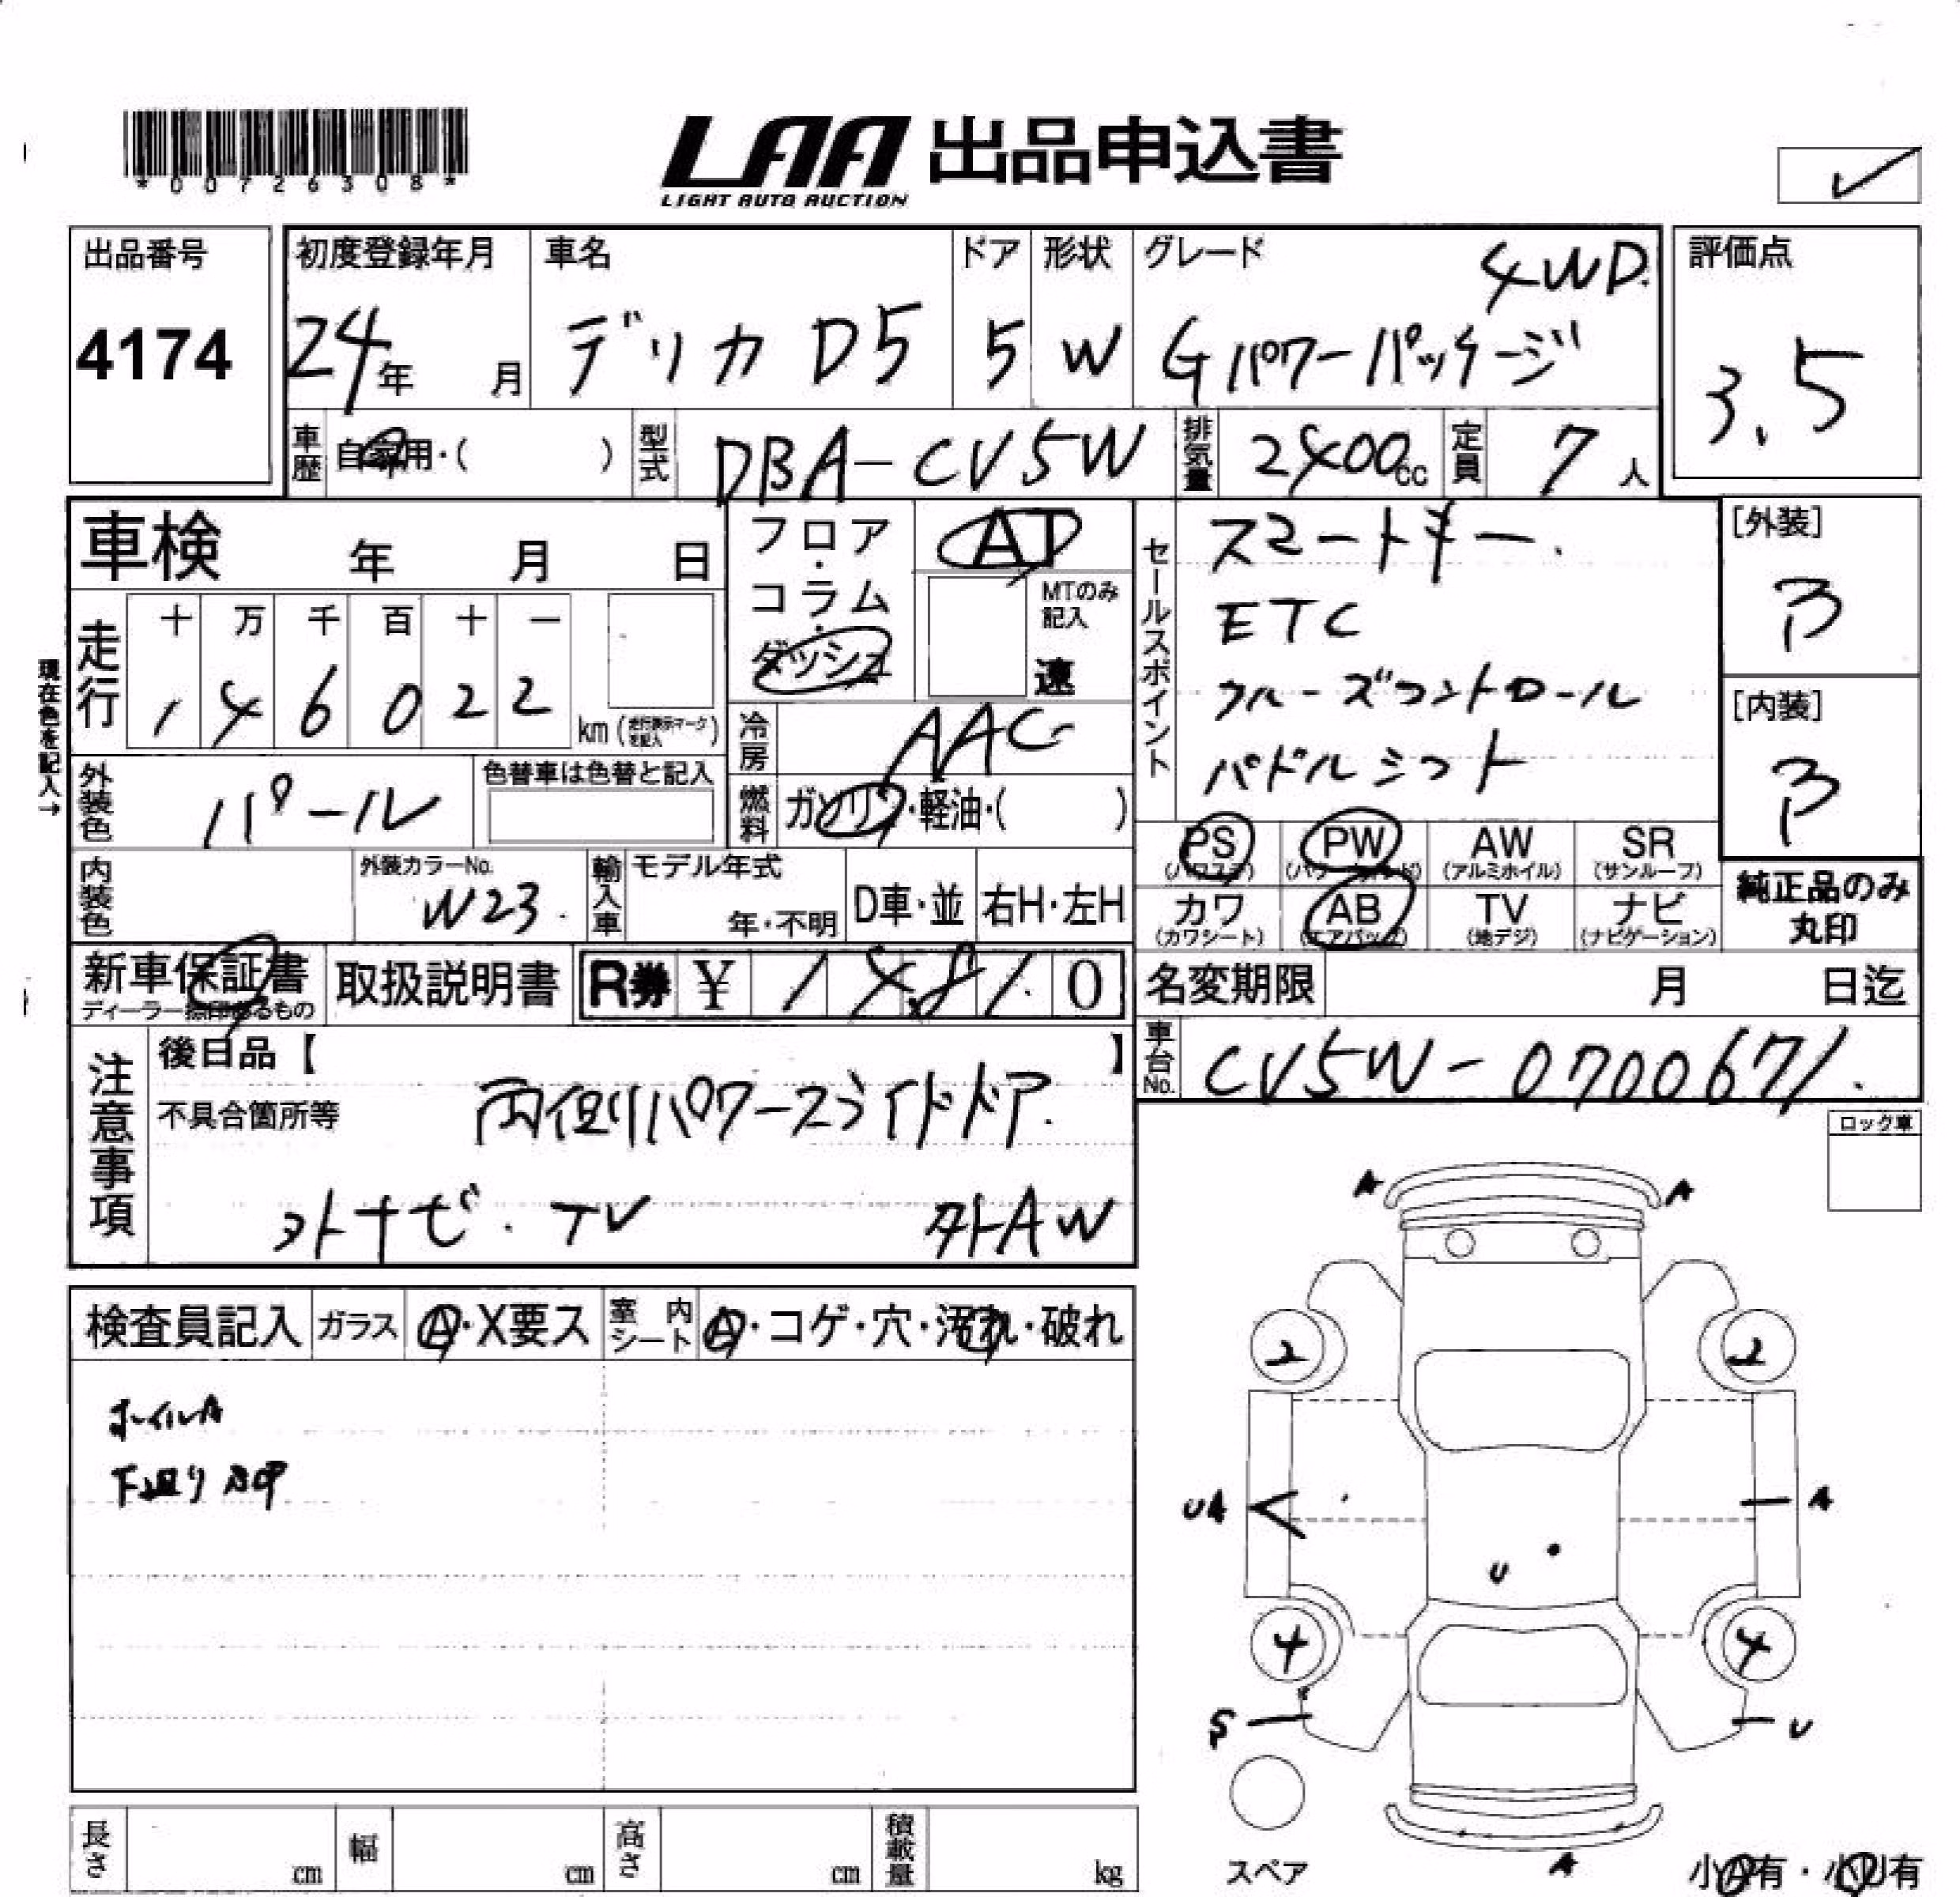 *00726308*
LAA 出品申込書
LIGHT AUTO AUCTION
出品番号
4174
初度登録年月
24年 月
車名
デリカ D5
ドア
5
形状
W
グレード
4WD
Gパワーパッケージ
評価点
3.5
車歴 自家用・( )
型式 DBA-CV5W
排気量 2400cc
定員 7人
車検 年 月 日
フロア・コラム・ダッシュ
AT
MTのみ記入
速
セールスポイント
スマートキー.
ETC
クルーズコントロール
パドルシフト
[外装]
B
[内装]
B
現在色を記入→
走行
十 万 千 百 十 一
1 4 6 0 2 2
km(走行表示マークを記入)
冷房 AAC
外装色 パール
色替車は色替と記入
燃料 ガソリン・軽油・( )
PS
(パワステ)
PW
(パワーウインド)
AW
(アルミホイル)
SR
(サンルーフ)
カワ
(カワシート)
AB
(エアバッグ)
TV
(地デジ)
ナビ
(ナビゲーション)
純正品のみ
丸印
内装色
外装カラーNo.
W23
輸入車
モデル年式
年・不明
D車・並
右H・左H
新車保証書
ディーラー捺印あるもの
取扱説明書
R券 ¥ 14,810
名変期限 月 日迄
車台No. CV5W-0700671.
注意事項
後日品【 】
不具合箇所等
両側パワースライドドア.
外ナビ. TV 外AW
ロック車
検査員記入
ガラス
A・X要ス
室内シート
A・コゲ・穴・汚れ・破れ
ホイルA
下廻り
A A
2 2
UA A
U
4 4
S U
A
スペア
小A有・小U有
長さ cm
幅 cm
高さ cm
積載量 kg